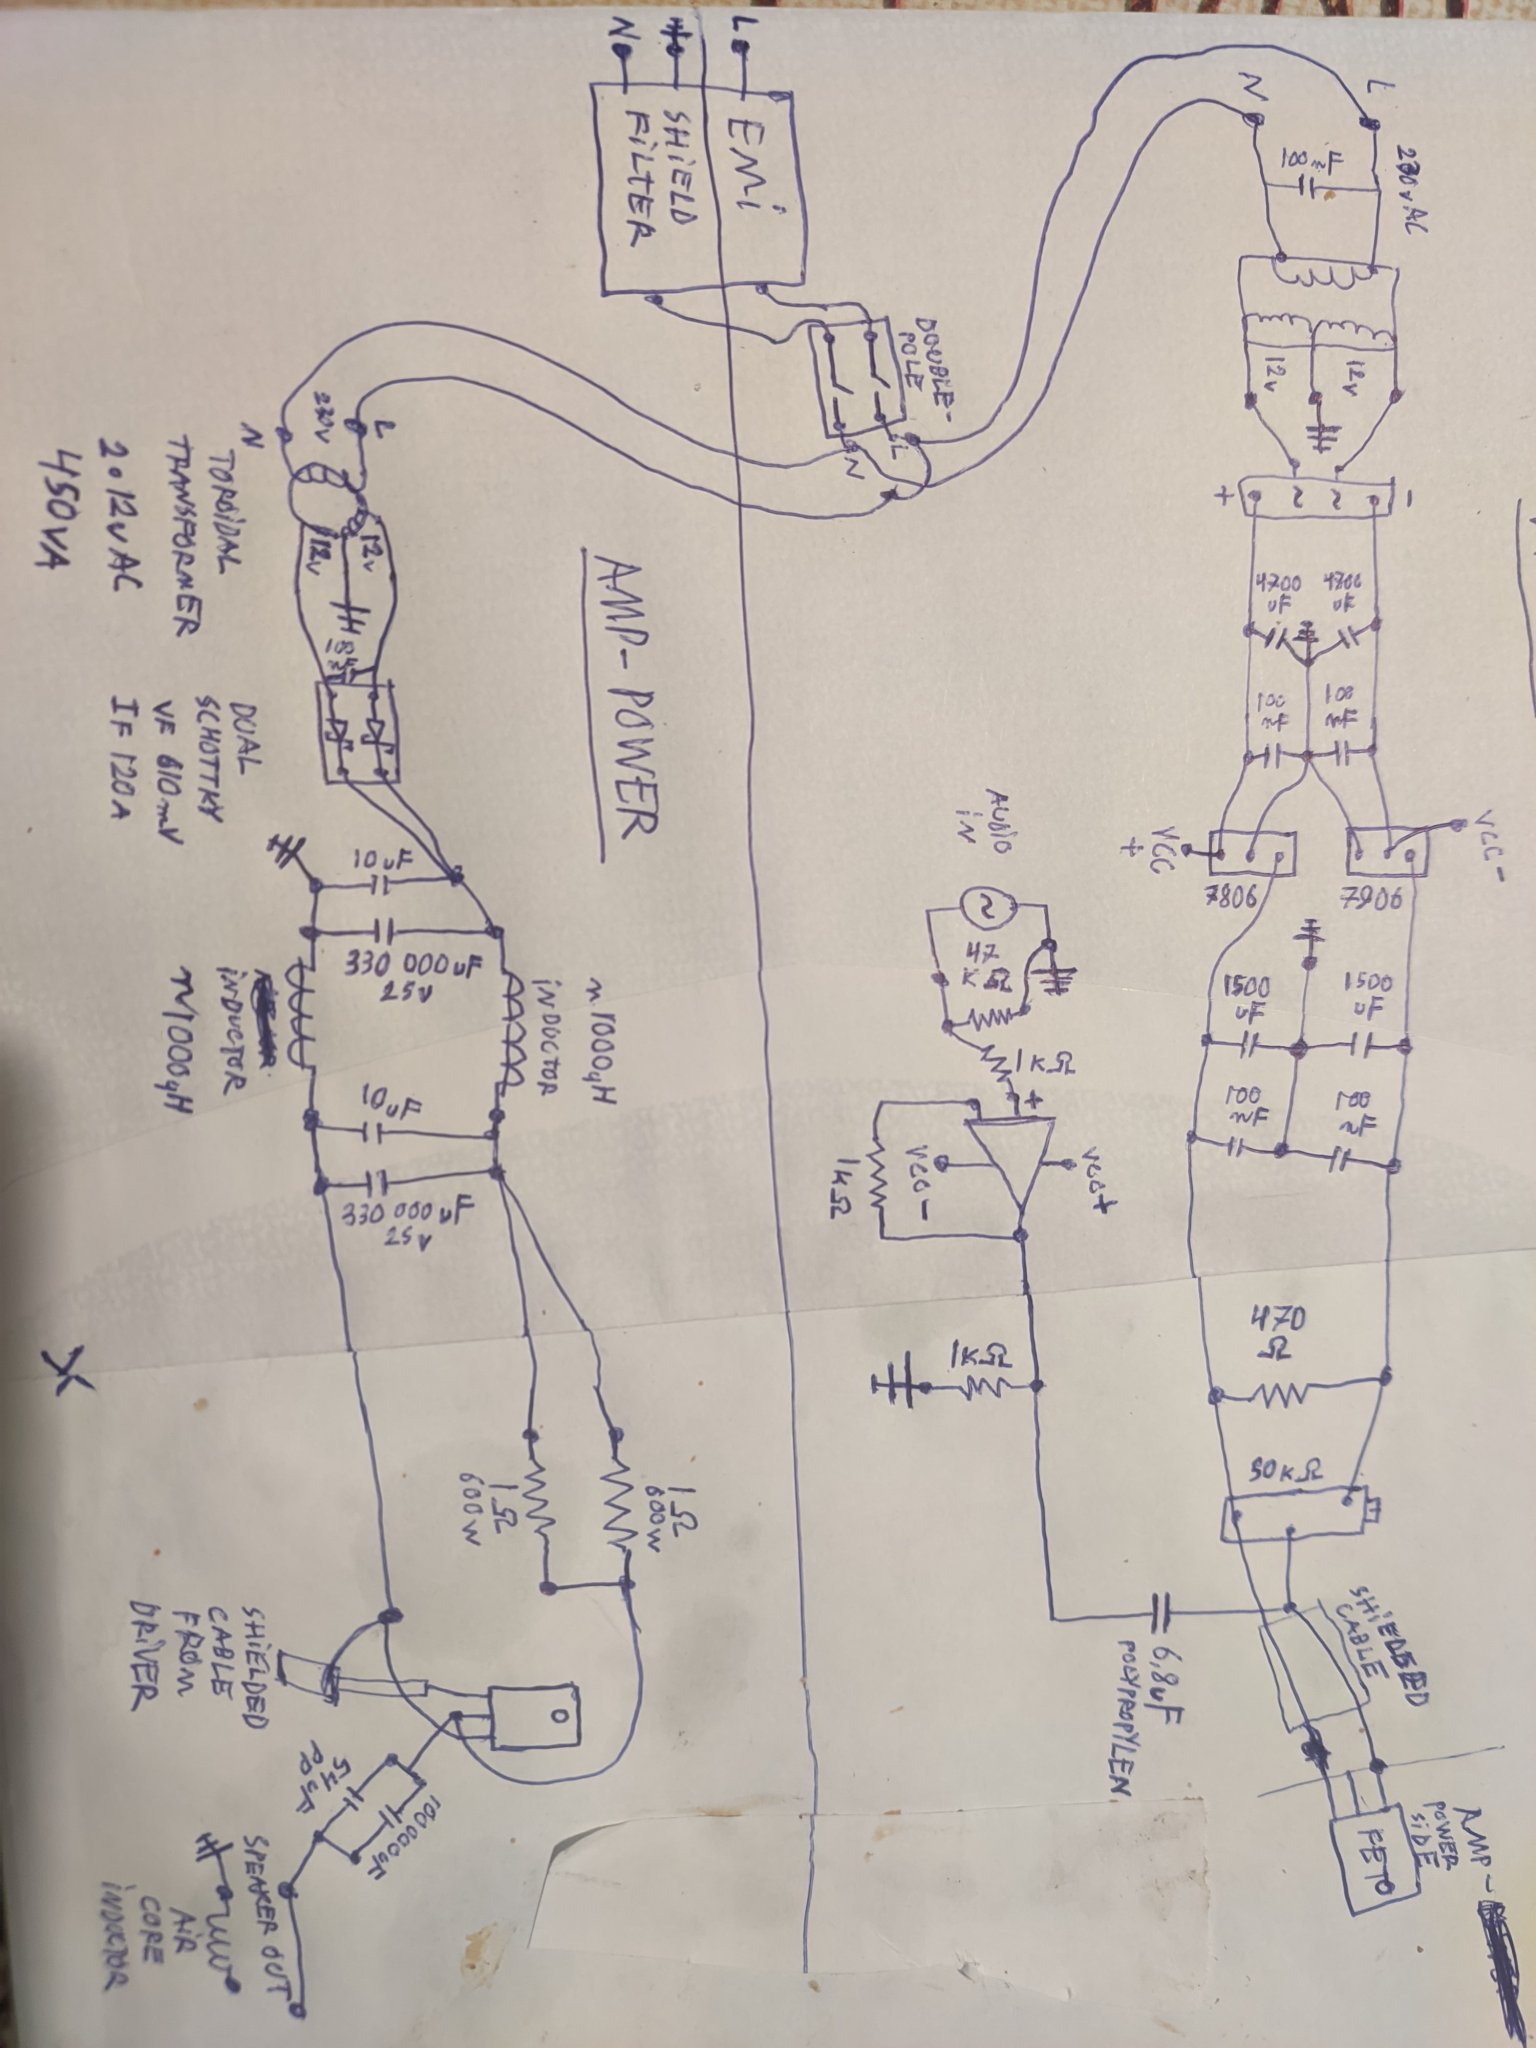 L
N
230vAC
100
nF
12v
12v
+
~
~
-
4700
uF
4700
uF
100
nF
100
nF
VCC
+
VCC -
7806
7906
1500
uF
1500
uF
100
nF
100
nF
470
Ω
50KΩ
SHIELDED
CABLE
AMP-
POWER
SIDE
FET
AUDIO
IN
~
47
KΩ
1KΩ
+
-
VCC+
VCC -
1KΩ
1KΩ
6,8uF
POLYPROPYLEN
L
N
EMi
SHiELD
FiLTER
DOUBLE-
POLE
L
N
AMP-POWER
L
230v
N
12v
12v
TOROiDAL
TRANSFORMER
2.12vAC
450VA
DUAL
SCHOTTKY
VF 610mV
IF 120A
10uF
330 000uF
25v
~1000µH
iNDUCTOR
iNDUCTOR
~1000µH
10uF
330 000uF
25v
1Ω
600w
1Ω
600w
SHiELDED
CABLE
FROM
DRiVER
10000uF
SPEAKER OUT
AiR
CORE
iNDUCTOR
X